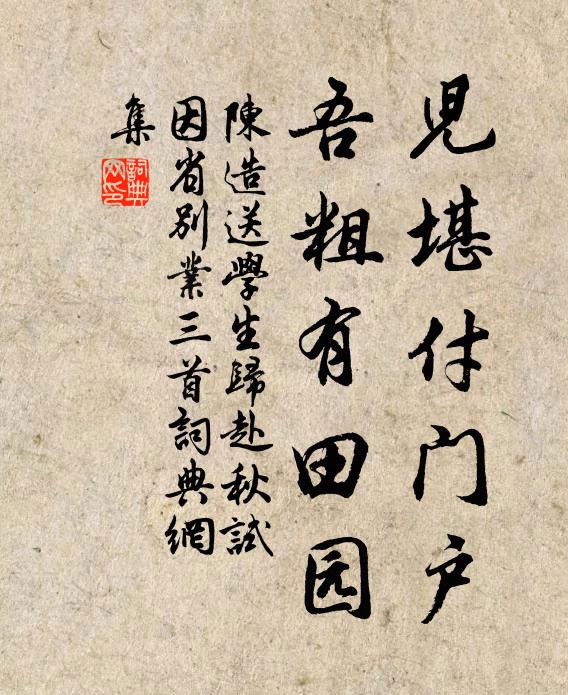 児堪付门户
吾粗有田园
陳造送學生歸赴秋試
因省别業三首詞典網
集
詞典网印